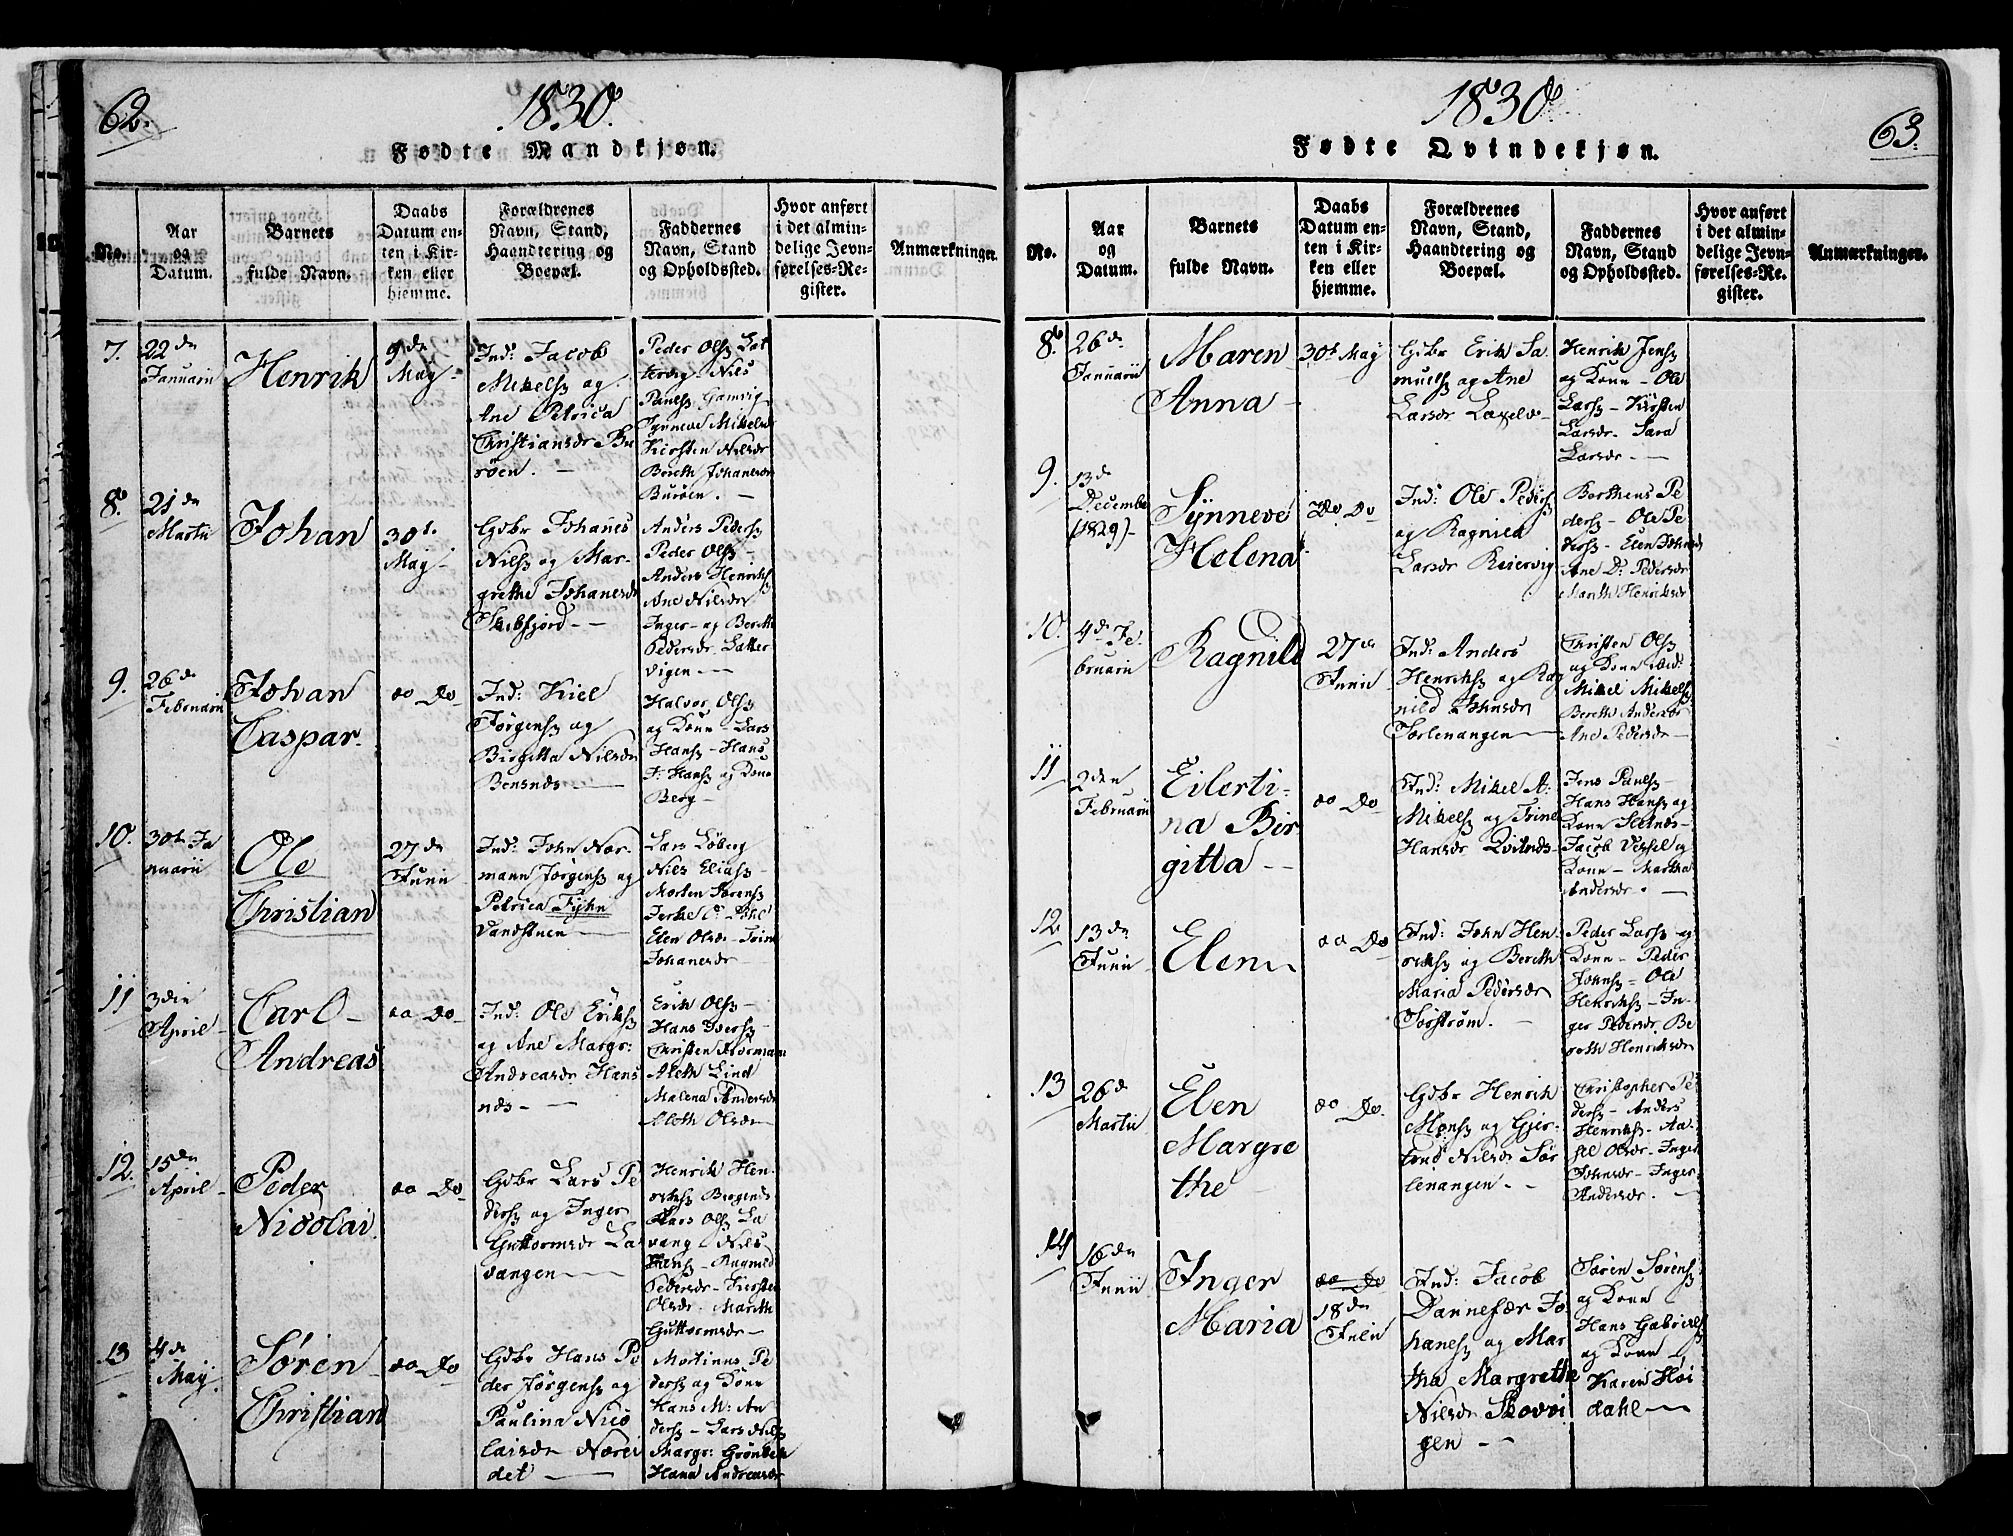 62.
1830.
Fødte Mandkjøn.
No.
Aar
og
Datum.
Barnets
fulde Navn.
Daabs
Datum en-
ten i Kir-
ken eller
hjemme.
Forældrenes
Navn, Stand,
Haandtering og
Boepæl.
Faddernes
Navn, Stand
og Opholdssted.
Hvor anført
i det almin-
delige Jevn-
førelses-Re-
gister.
Anmærkninger.
7.
22de
Januarii
Henrik
9de
May
Ind: Jacob
Mikels. og
Ane Petrica
Christiansdr Bu
röen.
Peder Ols. Lat
tervig. Nils
Pauls. Gamvig
Synneve Mikelsdr
Kiersten Nilsdr
Bereth Johanesdr
Buröen.
8.
21de
Martii
Johan
30t.
May
Gdbr Johanes
Nils. og Mar-
grethe Johanesdr
Skibfjord
Anders Peders.
Peder Ols.
Anders Henriks.
Ane Nilsdr
Inger og Bereth
Pedersdr. Latter
vigen
9.
26de
Februarii
Johan
Caspar.
do Do
Ind: Kiel
Jørgens. og
Birgitta Nilsdr
Bensnæs
Halvor Ols.
og Kone - Lars
Hans. - Hans
J. Hans. og Kone
Berg
10.
30te Ja
nuarii
Ole
Christian
27de
Junii
Ind: John Nor-
mann Jörgens. og
Petrica Fyhn
Vandstuen
Lars Löberg
Nils Elias.
Morten Sörens.
Elen Olsdr - Trine
Johanesdr
11
3die
April
Carl
Andreas
do Do
Ind: Ole Eriks.
og Ane Margr:
Andreasdr Hans
næs
Erik Ols.
Hans Ivers.
Christen Normann
Aleth Lind
Malena Andersdr
Aleth Olsdr
12.
15de
April
Peder
Nicolai.
do Do
Gdbr Lars Pe
ders. og Inger
Guttormsdr La
vangen
Henrik Hen
riks. Bergend
Lars Ols. La
vang - Nils
Ragnild
Pedersdr - Kirsten
Olsdr. Mareth
Guttormsdr
13
4de
May
Søren
Christian
do Do
Gdbr Hans Pe
der Jørgens. og
Paulina Nico
laisdr Norei
det
Martinus Pe
ders. og Kone
Hans M: An
ders. - Lars Nils.
Margr: Grönbek
Hana Andreasdr
1830.
63.
Fødte Qvindekjøn.
No.
Aar
og
Datum.
Barnets
fulde Navn.
Daabs
Datum en-
ten i Kir-
ken eller
hjemme.
Forældrenes
Navn, Stand,
Haandtering og
Boepæl.
Faddernes
Navn, Stand
og Opholdssted.
Hvor anført
i det almin-
delige Jevn-
førelses-Re-
gister.
Anmærkninger.
8.
26de
Januarii
Maren
Anna
30t May
Gdbr Erik Sa
muels. og Ane
Larsdr Laxelv
Henrik Jens.
og Kone - Ole
Lars. - Kirsten
Larsdr. Sara
Larsdr.
9.
13de
Decembr
(1829)
Synneve
Helena
Do Do
Ind: Ole Peders.
og Ragnild
Larsdr Reiervig
Berthens Pe
ders. - Ole Pe
ders. - Elen Johnsdr
Ane D: Pedersdr
Mareth Henriksdr
10.
4de Fe
bruarii
Ragnild
27de
Junii
Ind: Anders
Henriks. og Rag
nild Johnsdr
Sørlenangen
Christen Ols.
og Kone
Mikel Mikels.
Bereth Andersdr
Ane Pedersdr
11
2den
Februarii
Eilerti-
na Bir
gitta
do Do
Ind: Mikel A:
Mikels. og Trine
Hansdr Qvitnæs
Jens Pauls.
Hans Hans. og
Kone Sletnæs
Jacob Vessel og
Kone - Martha
Andersdr.
12.
13de
Junii
Elen
do Do
Ind: John Hen
riks. og Bereth
Maria Pedersdr
Sørstrøm.
Peder Lars. og
Kone - Peder
Johns. - Ole
Henriks. - In
ger Pedersdr. Be
reth Henriksdr
13
26de
Martii
Elen
Margre
the
do Do
Gdbr Henrik
Møns. og Gjer-
trud Nilsdr Sør
lenangen
Christopher Pe
ders. - Anders
Henriks. - Aa-
sel Olsdr - Inger
Johnsdr - Inger
Andersdr.
14
16de
Junii
Inger
Maria
do Do
18de
Julii
Ind: Jacob
Dannefær Jo
hanes. og Mar
tha Margrethe
Nilsdr Skovøi
gen
Søren Sørens.
og Kone
Hans Gabriels.
og Kone
Karen Høi
dahl